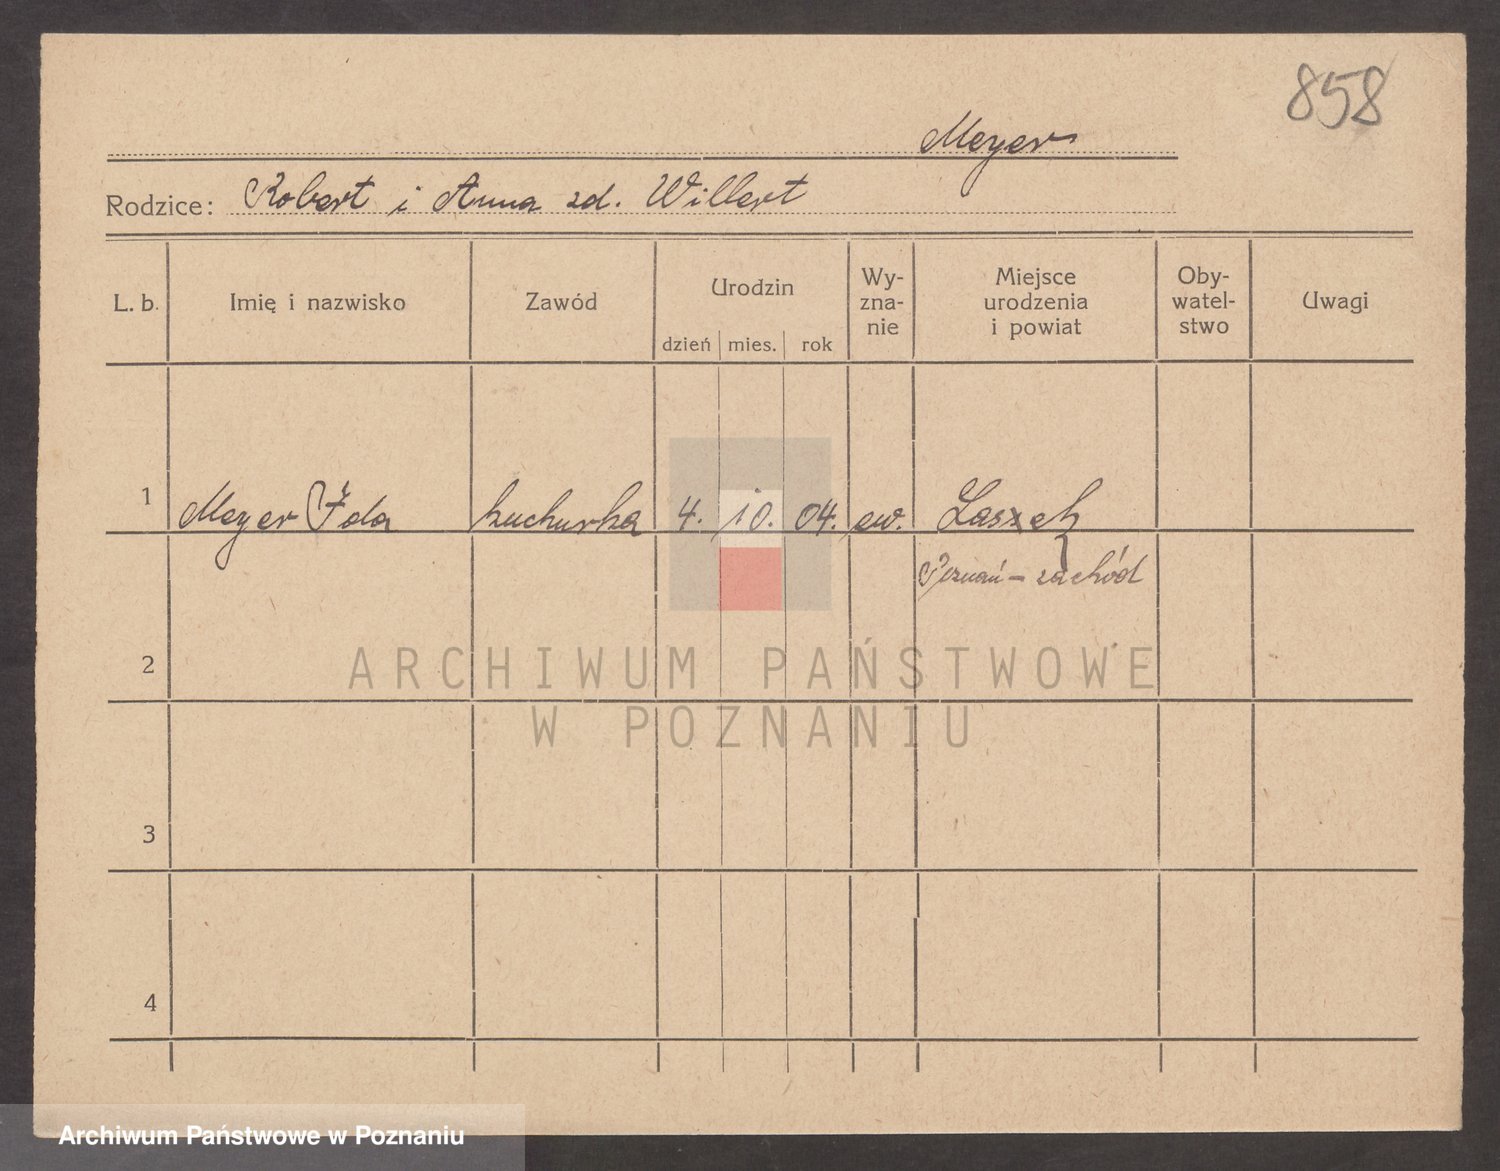 858
Meyer
Rodzice: Robert i Anna zd. Willert
L. b. Imię i nazwisko Zawód Urodzin dzień mies. rok Wy-zna-nie Miejsce urodzenia i powiat Oby-watel-stwo Uwagi
1 Meyer Ida kucharka 4. 10. 04. ew. Laszek
Poznań - zachód
2
ARCHIWUM PAŃSTWOWE
W POZNANIU
3
4
Archiwum Państwowe w Poznaniu